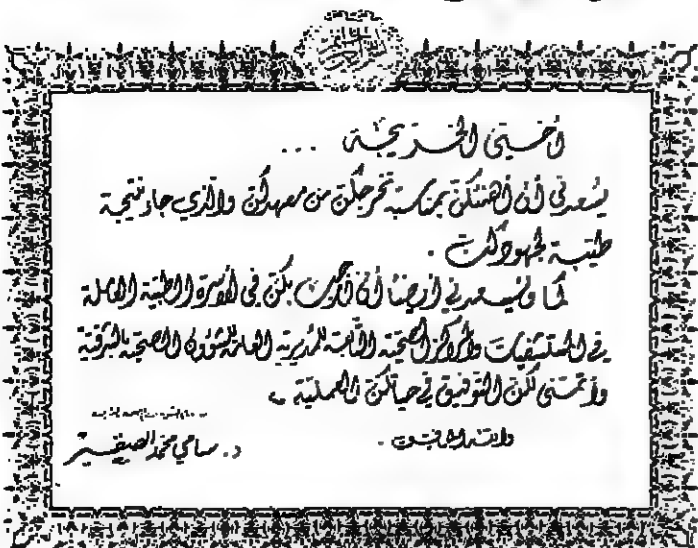 أختي الخريجة ...
يسعدني أن أهنئكن بمناسبة تخرجكن من معهدكن والذي جاء نتيجة
طيبة لجهودكن .
كما ويسعدني أيضاً أن أرحب بكن في الأسرة الطبية العاملة
في المستشفيات والمراكز الصحية التابعة للمديرية العامة للشؤون الصحية بالشرقية
وأتمنى لكن التوفيق في حياتكن العملية ،،
والله الموفق .
د . سامي محمد الصغير